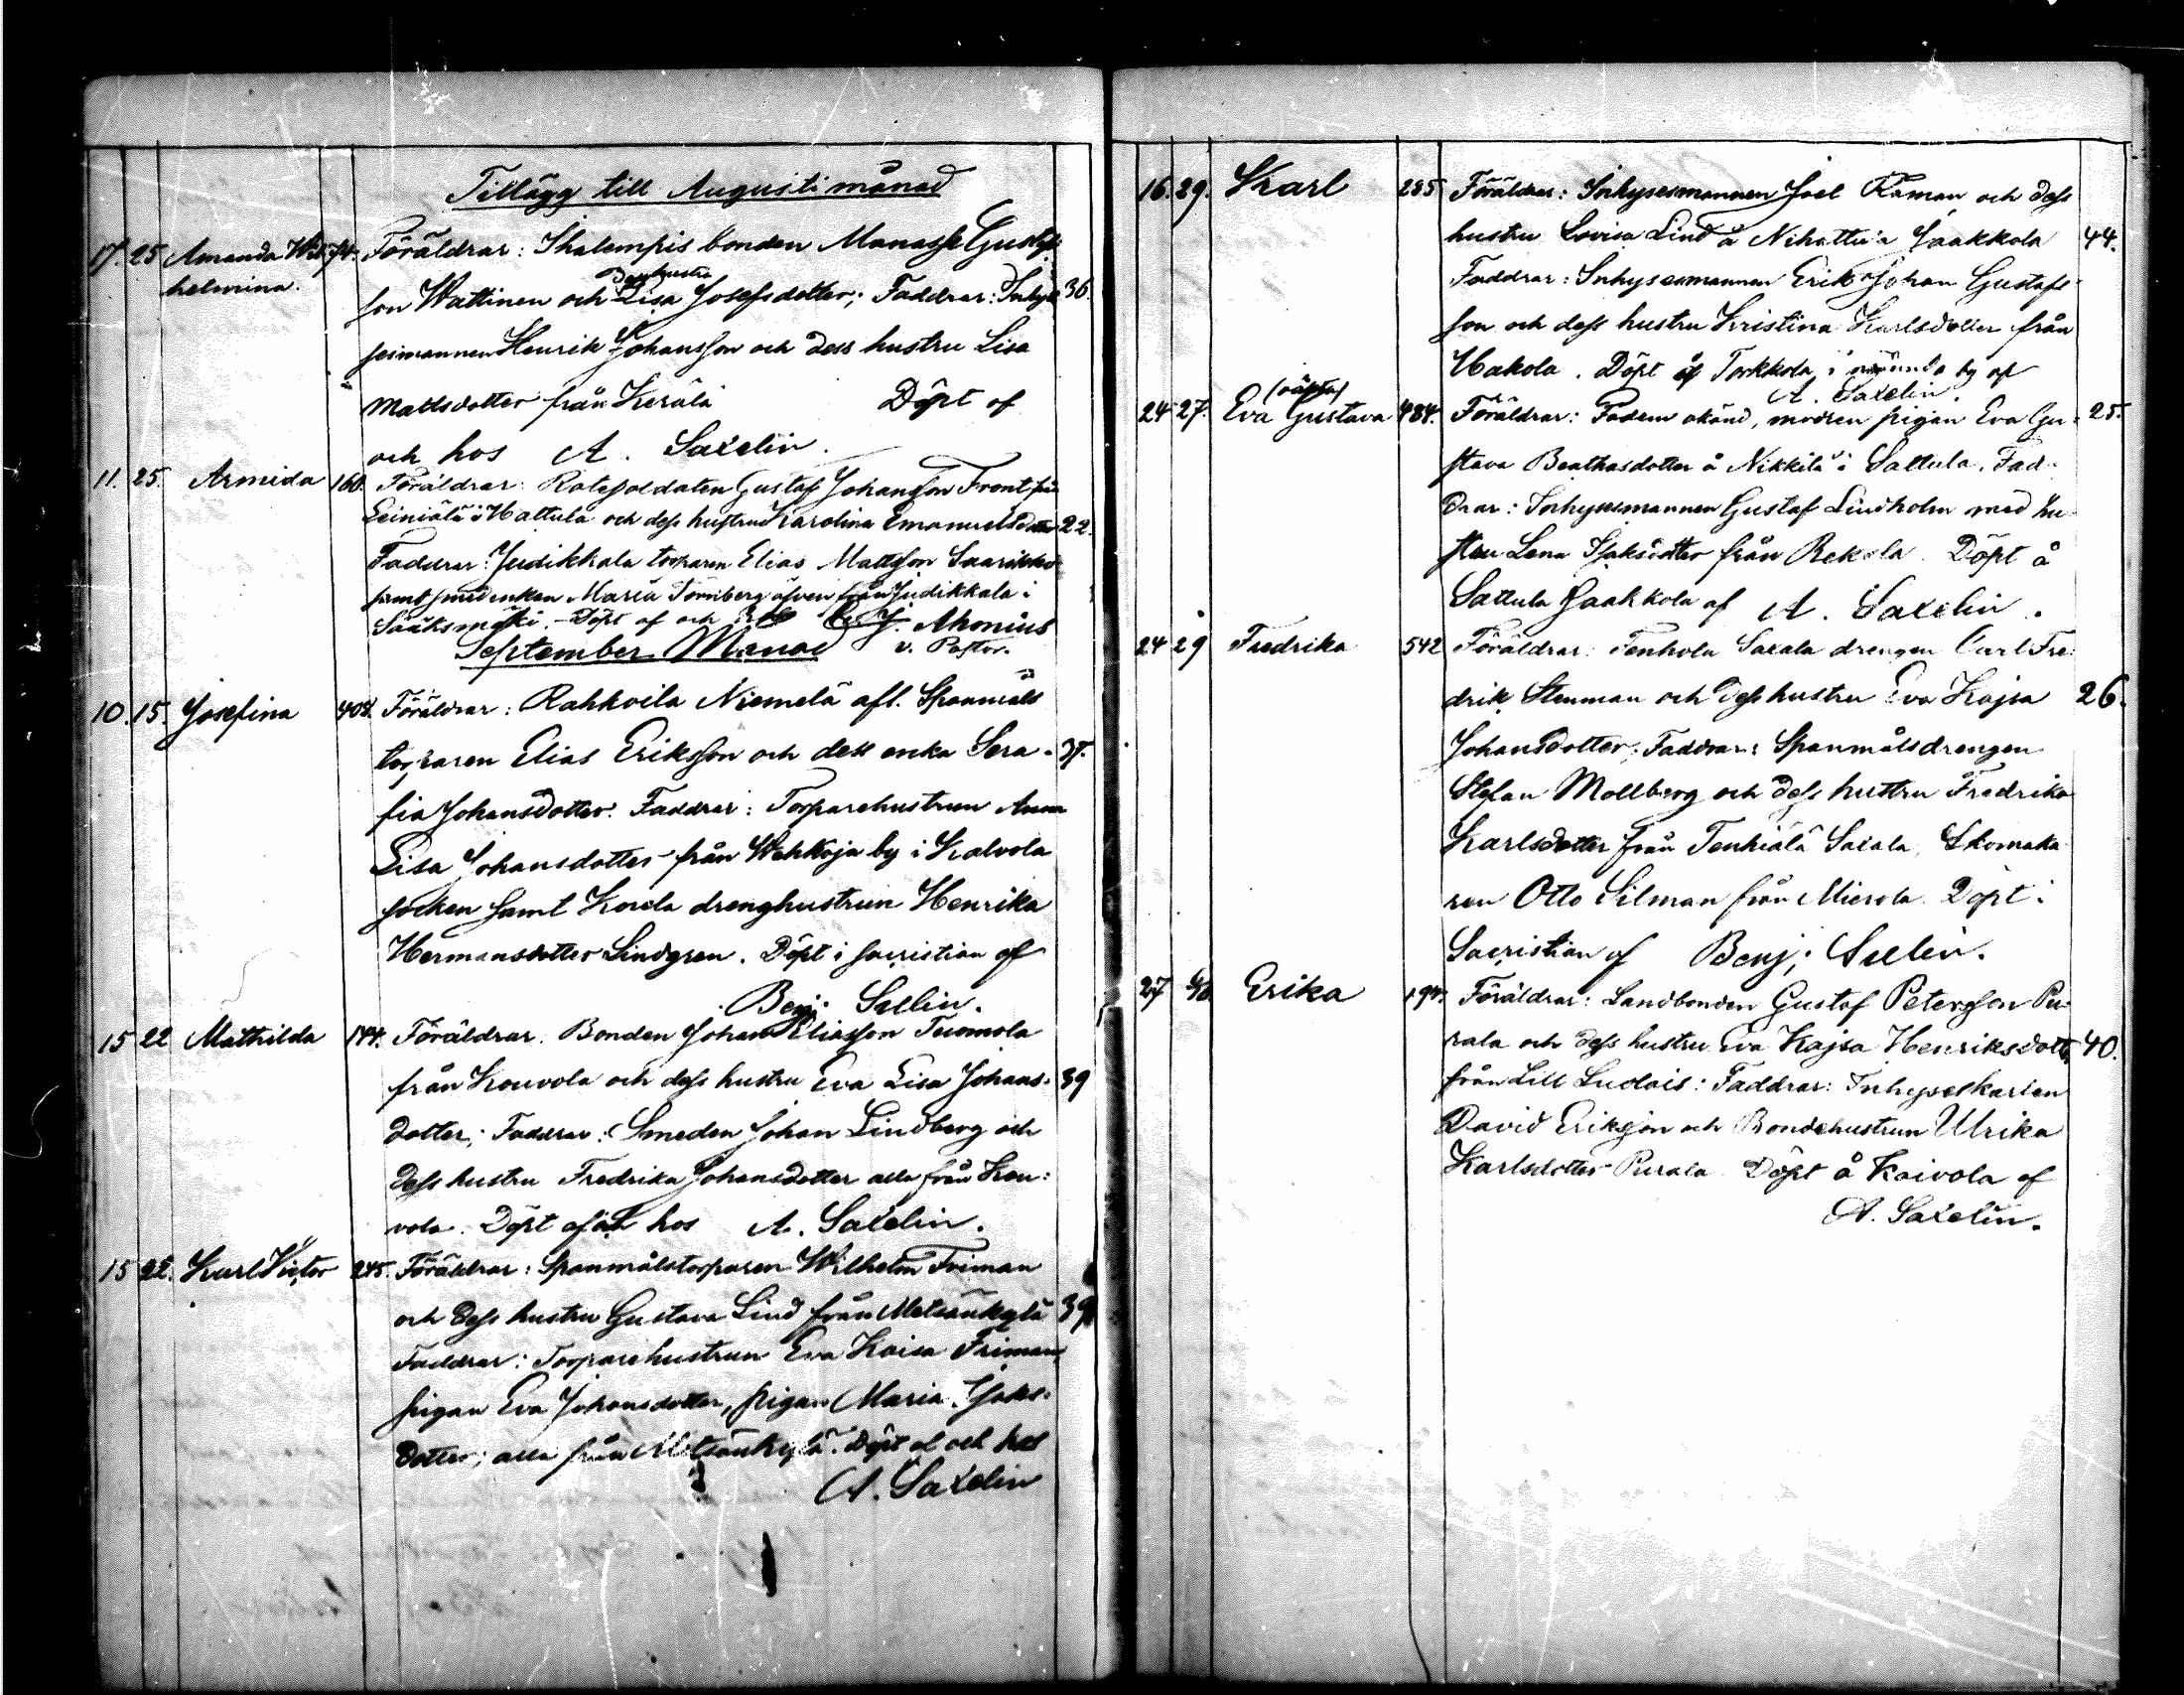 Tillägg till Augusti månad
17. 25 Amanda Wil- 74. Föräldrar: Ihalempis bonden Manasse Gustaf-
helmina.
son Wattinen och Dess hustru Lisa Josefsdotter; Faddrar: Inhy- 36.
sesmannen Henrik Johansson och dess hustru Lisa
Mattsdotter från Kerälä Döpt af
och hos A. Saxelin.
11. 25. Armida 160. Föräldrar: Rotesoldaten Gustaf Johansson Front från
Leiniälä i Hattula och dess hustru Karolina Emanuelsdotter 22.
Faddrar: Judikkala torparen Elias Mattsson Saarikko
samt smedenkan Maria Törnberg äfven från Judikkala i
Sääksmäki. Döpt af och Ahonius
v. Pastor.
September Månad
10. 15. Josefina 408. Föräldrar: Rahkoila Niemelä afl. Spanmåls
torparen Elias Eriksson och dess enka Sera- 37.
fia Johansdotter. Faddrar: Torparehustrun Anna
Lisa Johansdotter från Wehkoja by i Kalvola
socken samt Konda drenghustrun Henrika
Hermansdotter Lindgren. Döpt i sacristian af
Benj: Sellin.
15 22 Mathilda 144. Föräldrar: Bonden Johan Eliasson Tuomola
från Kouvola och dess hustru Eva Lisa Johans- 39
dotter; Faddrar: Smeden Johan Lindberg och
dess hustru Fredrika Johansdotter alla från Kou-
vola. Döpt af och hos A. Saxelin.
15 22. Karl Victor 245. Föräldrar: Spanmålstorparen Wilhelm Friman
och dess hustru Gustava Lind från Metsänkylä 39
Faddrar: Torparehustrun Eva Kaisa Friman,
pigan Eva Johansdotter, pigan Maria Isaks-
dotter; alla från Metsänkylä. Döpt af och hos
A. Saxelin
16. 29. Karl 285 Föräldrar: Inhysesmannen Joel Råman och dess
hustru Lovisa Lind å Nihattula Jaakkola 44.
Faddrar: Inhysesmannen Erik Johan Gustafs-
son och dess hustru Kristina Karlsdotter från
Hakola. Döpt å Torkkola i nämnda by af
A. Saxelin.
(oäkta)
24 27. Eva Gustava 484. Föräldrar: Fadren okänd, modren pigan Eva Gu- 25.
stava Beathasdotter å Nikkilä i Sattula. Fad-
drar: Inhysesmannen Gustaf Lindholm med hu-
stru Lena Isaksdotter från Rekola. Döpt å
Sattula Jaakkola af A. Saxelin.
24 29 Fredrika 542 Föräldrar: Tenhola Saxala drengen Carl Fre-
drik Stenman och dess hustru Eva Kajsa 26.
Johansdotter; Faddrar: Spanmålsdrengen
Stefan Mollberg och dess hustru Fredrika
Karlsdotter från Tenhiälä Saxala, Skomaka-
ren Otto Silman från Mierola. Döpt i
Sacristian af Benj: Sellin.
27 Erika 194. Föräldrar: Landbonden Gustaf Petersson Pu-
rala och dess hustru Eva Kajsa Henriksdott. 40.
från Lill Luolais: Faddrar: Inhyseskarlen
David Eriksson och Bondehustrun Ulrika
Karlsdotter Purala Döpt å Koivola af
A. Saxelin.